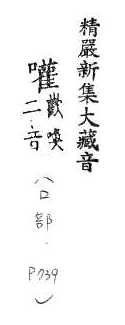 精嚴新集大藏音
嚾歡喚二音（口部.P739）